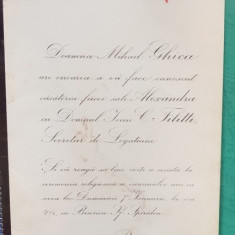 Doamna Mihail Ghica
are onoarea a vă face cunoscut
căsătoria fiicei sale Alexandra
cu Domnul Ioan C. Filitti
Secretar de Legațiune
Și vă rog să bine voiți a asista la
ceremonia religioasă a cununiei ce
va avea loc Duminică 7 la ora
în Biserica Sf. Spiridon